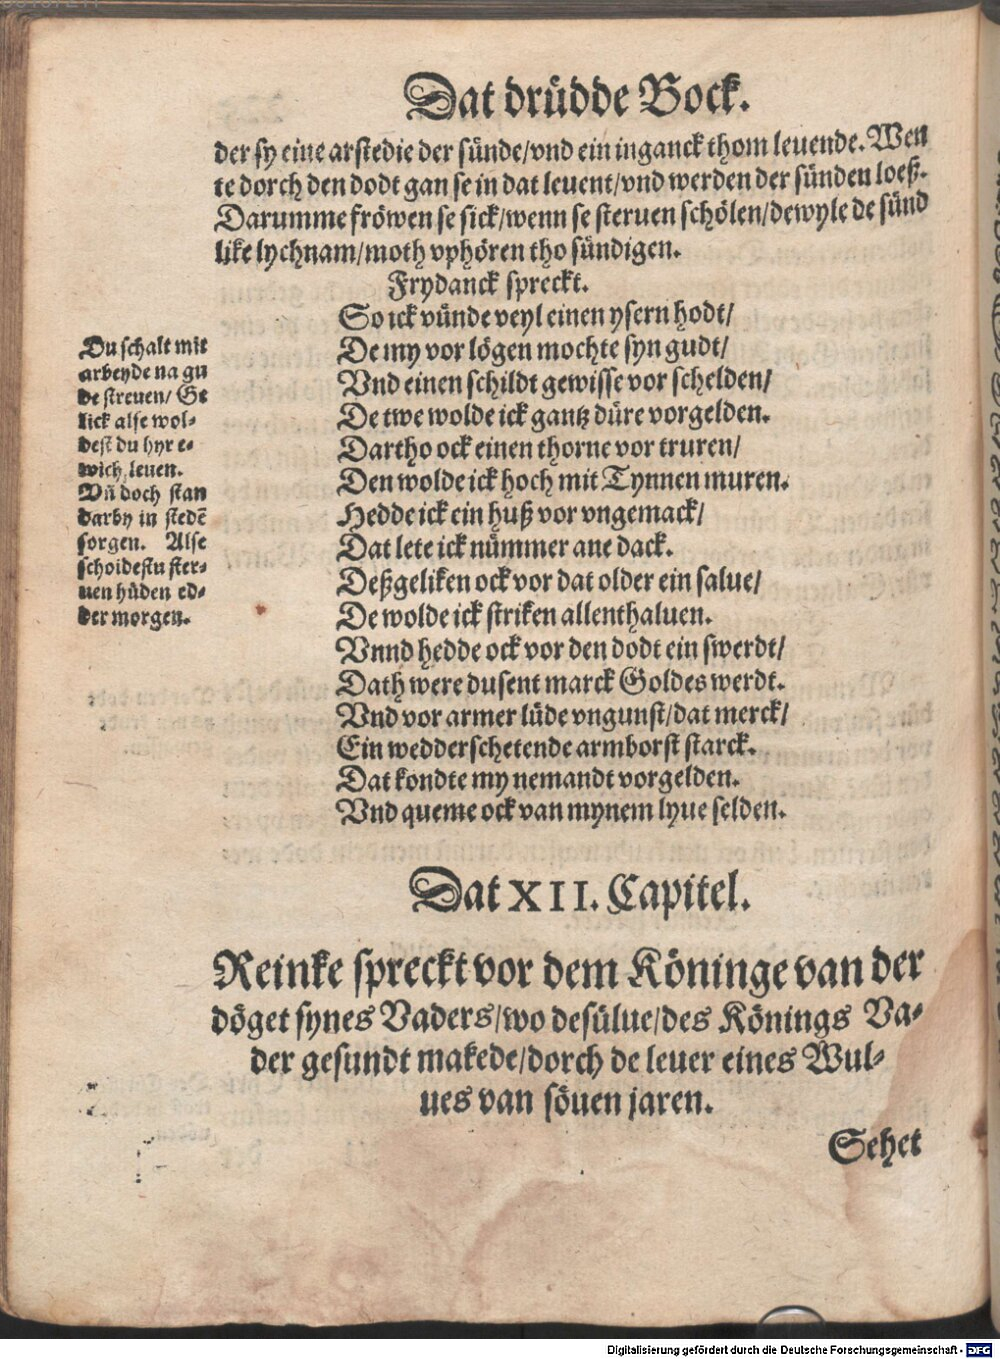 Dat drüdde Bock.
der sy eine arstedie der sünde/vnd ein inganck thom leuende. Wen
te dorch den dodt gan se in dat leuent/vnd werden der sünden loeß.
Darumme fröwen se sick/wenn se steruen schölen/dewyle de sünd
like lychnam/moth vphören tho sündigen.
Frydanck spreckt.
So ick vünde veyl einen ysern hodt/
De my vor lögen mochte syn gudt/
Vnd einen schildt gewisse vor schelden/
De twe wolde ick gantz düre vorgelden.
Dartho ock einen thorne vor truren/
Den wolde ick hoch mit Tynnen muren.
Hedde ick ein huß vor vngemack/
Dat lete ick nümmer ane dack.
Deßgeliken ock vor dat older ein salue/
De wolde ick striken allenthaluen.
Vnnd hedde ock vor den dodt ein swerdt/
Dath were dusent marck Goldes werdt.
Vnd vor armer lüde vngunst/dat merck/
Ein wedderschetende armborst starck.
Dat kondte my nemandt vorgelden.
Vnd queme ock van mynem lyue selden.
Du schalt mit
arbeyde na gu
de streuen/ Ge
lick alse wol-
dest du hyr e-
wich leuen.
Vñ doch stan
darby in stedē
sorgen. Alse
schoidestu ster-
uen hüden ed-
der morgen.
Dat XII. Capitel.
Reinke spreckt vor dem Köninge van der
döget synes Vaders/wo desülue/des Könings Va-
der gesundt makede/dorch de leuer eines Wul-
ues van söuen jaren.
Sehet
Digitalisierung gefördert durch die Deutsche Forschungsgemeinschaft - DFG